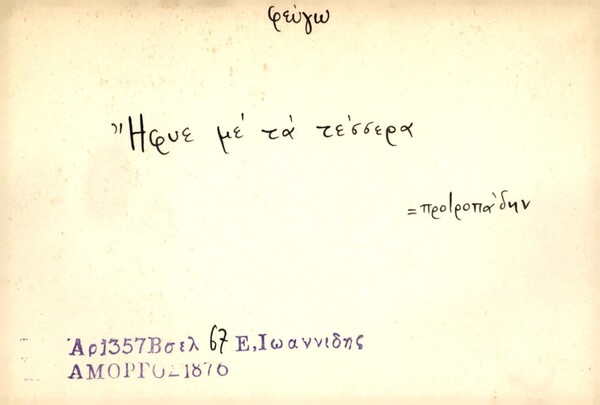 φεύγω
Ἤφυε μέ τά τέσσερα
= προτροπάδην
Ἀρ1357Βσελ 67 Ε,Ιωαννιδης
ΑΜΟΡΓΟΣ1876